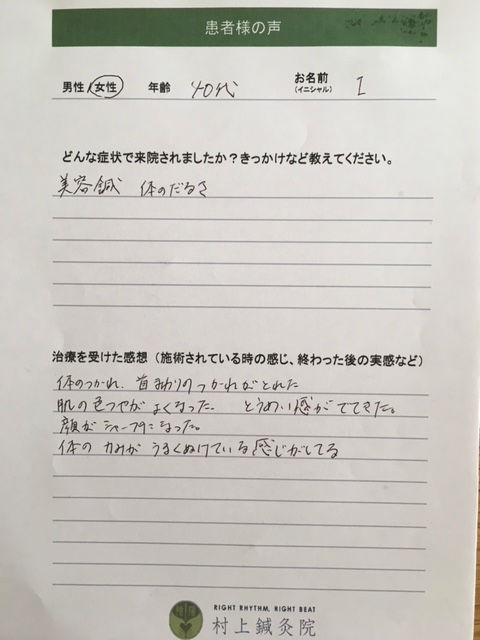 患者様の声
男性/女性 年齢 40代 お名前(イニシャル) I
どんな症状で来院されましたか？きっかけなど教えてください。
美容鍼 体のだるさ
治療を受けた感想（施術されている時の感じ、終わった後の実感など）
体のつかれ、首まわりのつかれがとれた
肌の色つやがよくなった。 とうめい感がでてきた。
顔がシャープになった。
体の力みがうまくぬけている感じがしてる
RIGHT RHYTHM, RIGHT BEAT
村上鍼灸院